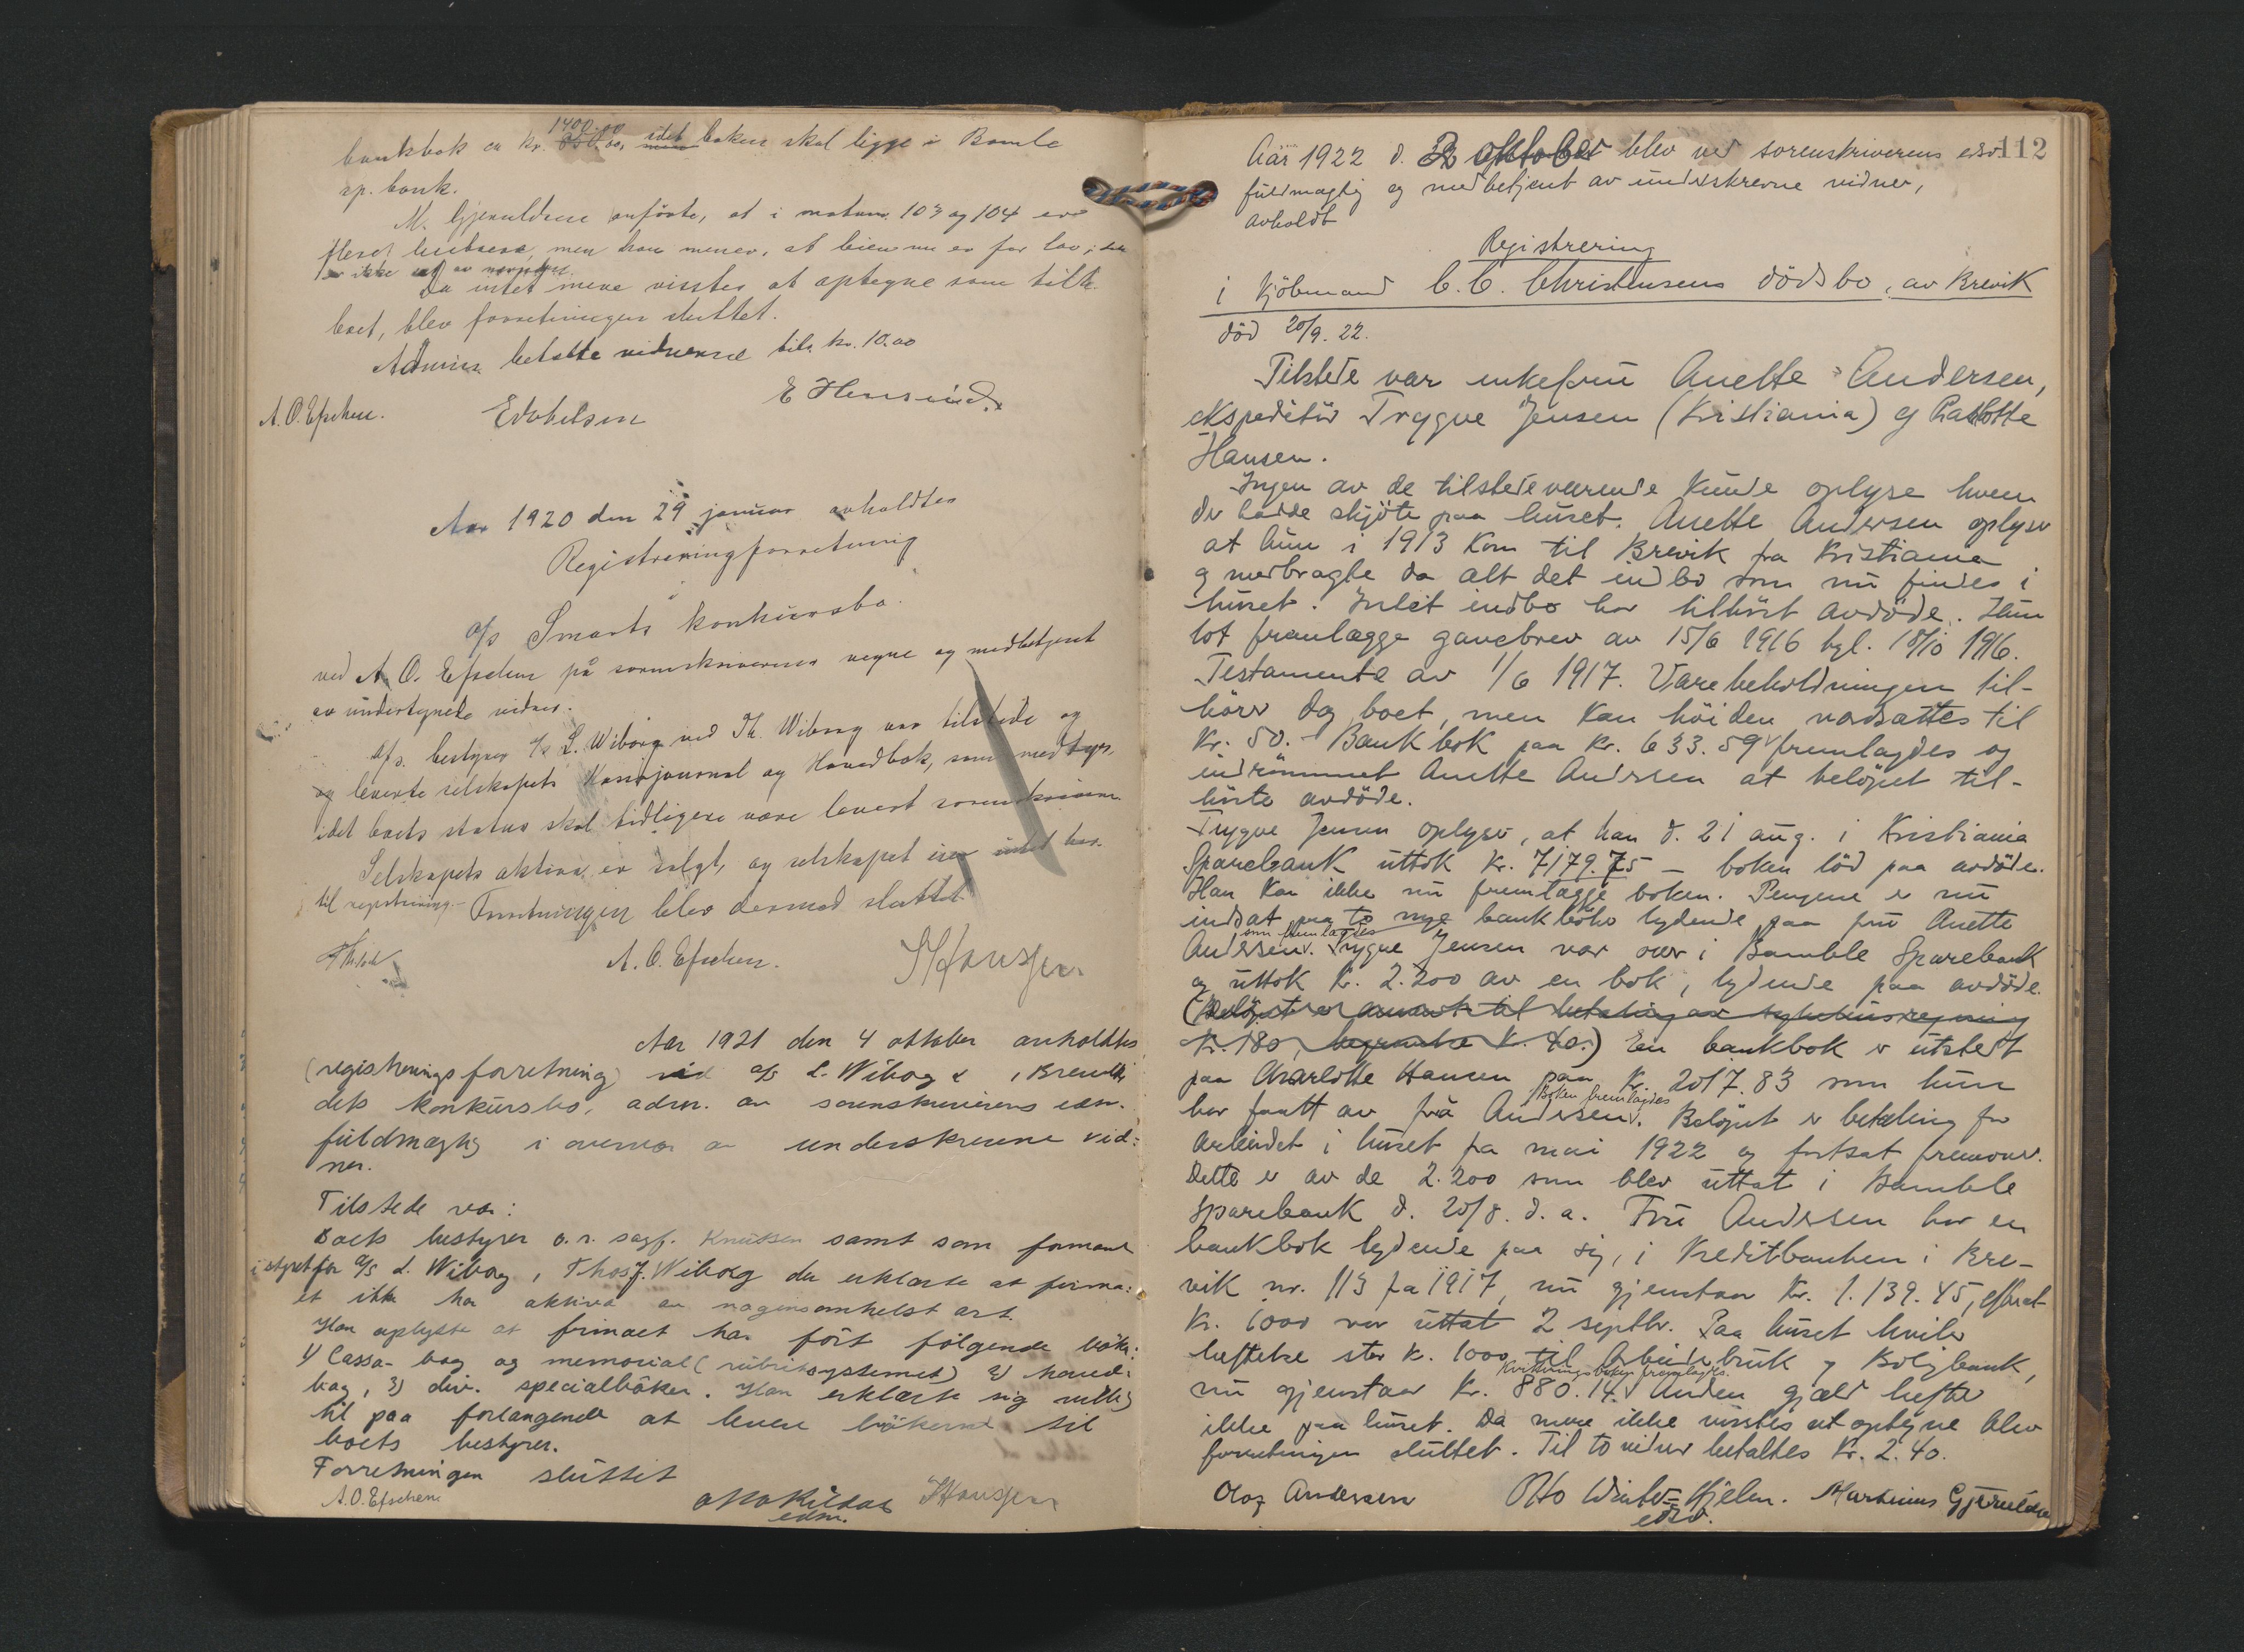 bankbok ca kr. 1400.00, idet boken skal ligge i Bamle
sp. bank.
M. Gjeruldsen anførte, at i matum. 103 og 104 er
flere men han mener, at bien nu er for lav; den
er ikke
Da intet mere visstes at optegne som tilh.
boet, blev forretningen sluttet.
Admin. betalte vidnerne tils. kr. 10.00
A. O. Efschen. E
Aar 1920 den 29 januar avholdtes
Registreringsforretning
i
a/s Smarts konkursbo.
ved A. O. Efschen på sorenskriverens vegne og medbetjent
av undertegnede vidner.
A/s. bestyrer a/s L. Wiborg ved Th. Wiborg var tilstede og
og leverte selskapets Kassajournal og Hovedbok, som medtges,
idet boets status skal tidligere være levert sorenskriveren.
Selskapets aktiva er solgt, og selskapet eier intet her
til registrering. – Forretningen blev dermed sluttet.
A. O. Efschen. Hansen
Aar 1921 den 4 oktober avholdtes
(registreringsforretning) ved a/s L. Wiborg &, i Brevik
dets konkursbo, adm. av sorenskriverens edsv.
fuldmægtig i overvær av underskrevne vid=
ner.
Tilstede var:
Boets bestyrer o.r. sagf. Knutsen samt som formand
i styret for a/s L. Wiborg, Thos J. Wiborg der erklærte at firma:
et ikke har aktiva av nogensomhelst art.
Han oplyste at firmaet har ført følgende bøker:
1) Cassa- bog og memorial (rubriksystemet) 2) hoved:
bog, 3) div. specialbøker. Han erklærte sig villig
til paa forlangende at levere bøkerne til
boets bestyrer.
Forretningen sluttet
A. O. Efschen Otto Hansen
edsv.
112
Aar 1922 d. 2 oktober blev ved sorenskriverens edsv.
fuldmægtig og medbetjent av underskrevne vidner,
avholdt
Registrering
i Kjöbmand C. C. Christensens dödsbo, av Brevik
död 20/9. 22.
Tilstede var enkefru Anette Andersen,
ekspeditör Trygve Jensen (Kristiania) og Charlotte
Hansen.
Ingen av de tilstedeværende kunde oplyse hvem
der hadde skjöte paa huset. Anette Andersen oplyser
at hun i 1913 kom til Brevik fra Kristiania
og medbragte da alt det indbo som nu findes i
huset. Intet indbo har tilhört avdöde. Hun
lot fremlægge gavebrev av 15/6 1916 tgl. 18/10 1916.
Testamente av 1/6 1917. Varebeholdningen til-
hörer dog boet, men kan höiden værdsættes til
Kr. 50. - Bankbok paa kr. 633.59 fremlagdes og
indrömmet Anette Andersen at belöpet til-
hörte avdöde.
Trygve Jensen oplyser, at han d. 21 aug. i Kristiania
Sparebank uttok kr. 7179.75 – boken löd paa avdöde.
Han kan ikke nu fremlægge boken. Pengene er nu
indsat paa to nye bankböker lydende paa fru Anette
Andersen. som fremlagdes Trygve Jensen var over i Bamble Sparebank
og uttok kr. 2.200 av en bok, lydende paa avdöde.
(Belöpet er anvendt til betaling av sykehusregning
Kr. 180, begravelse k. 40.) En bankbok er utstedt
paa Charlotte Hansen paa kr. 2017.83 som hun
har faatt av fru Andersen. Boken fremlagdes Belöpet er betaling for
arbeidet i huset fra mai 1922 og fortsat fremover.
Dette er av de 2.200 som blev uttat i Bamble
Sparebank d. 20/8. d. a. Fru Andersen har en
bankbok lydende paa sig, i Kreditbanken i Bre-
vik nr. 113 fra 1917, nu gjenstaar Kr. 1.139.45, efterat
Kr. 6000 var uttat 2 septbr. Paa huset hviler
heftelse stor k. 1000 til Arbeiderbruk og Boligbank,
nu gjenstaar Kr. 880.14. Kvitteringsboken fremlagdes. Anden gjæld hefter
ikke paa huset. Da mere ikke visstes at optegne blev
forretningen sluttet. Til to vidner betaltes Kr. 2.40.
Olaf Andersen Otto Winter=Hjelm. Martinius Gjeruldsen
edsv.